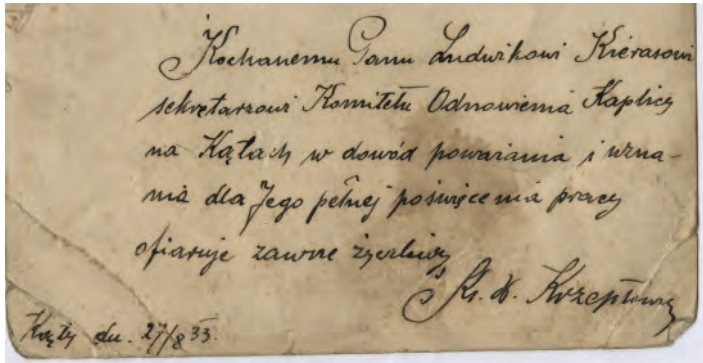 Kochanemu Panu Ludwikowi Kierasowi
sekretarzowi Komitetu Odnowienia Kaplicy
na Kątach w dowód poważania i uzna-
nia dla Jego pełnej poświęcenia pracy
ofiaruje zawsze życzliwy
Ks. W. Krzeptowsky
Kąty dn. 27/8 33.